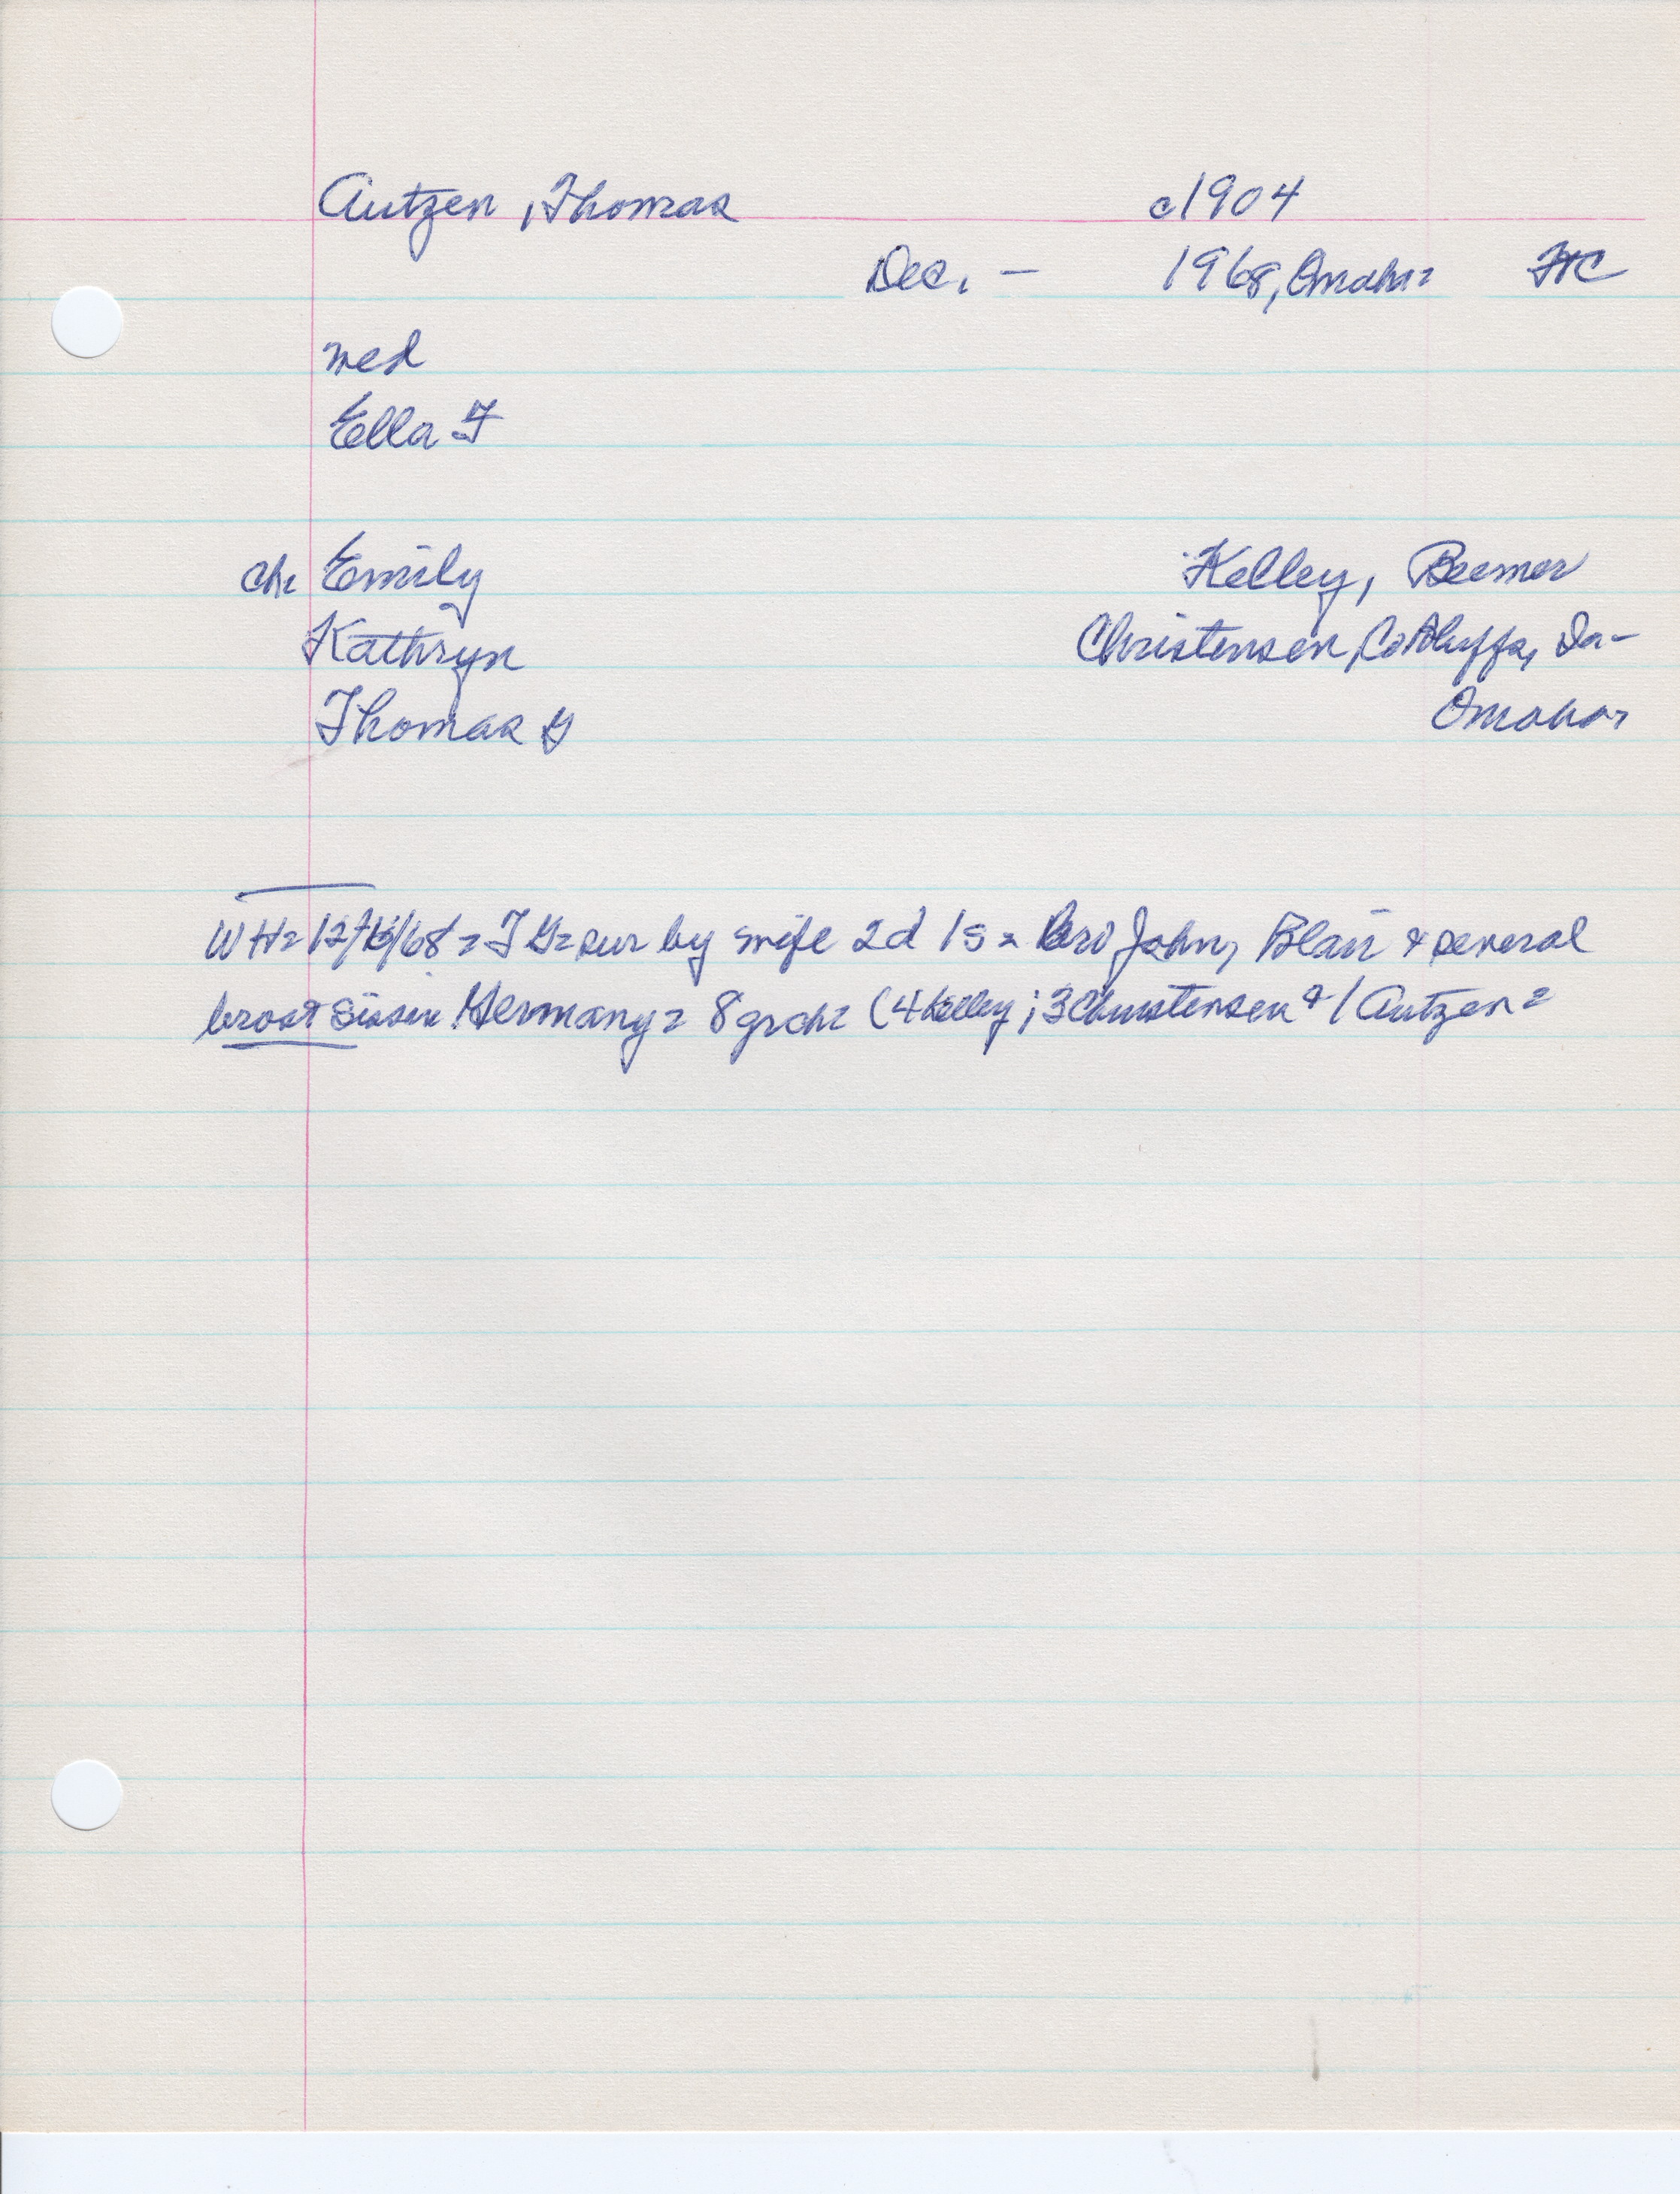 Autzen, Thomas c1904
Dec. — 1968, Omaha=
med
Ella F
ch= Emily Kelley, Beemer
Kathryn Christensen, Co Bluffs, Ia-
Thomas G Omaha=
WH= 12/ /68 = T G= sur by wife 2d 1s = Bro John, Blair & several
bros & sis in Germany = 8 grch= (4 Kelley; 3 Christensen & 1 Autzen =